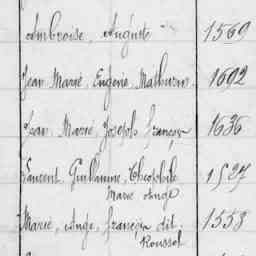 Ambroise, Auguste 1569
Jean Marie, Eugène, Mathurin. 1692
Jean, Marie, Joseph, françois 1636
Laurent, Guillaume, Théophile 1527
Marie Ange
Marie, Ange, françois dit 1553
Roussel